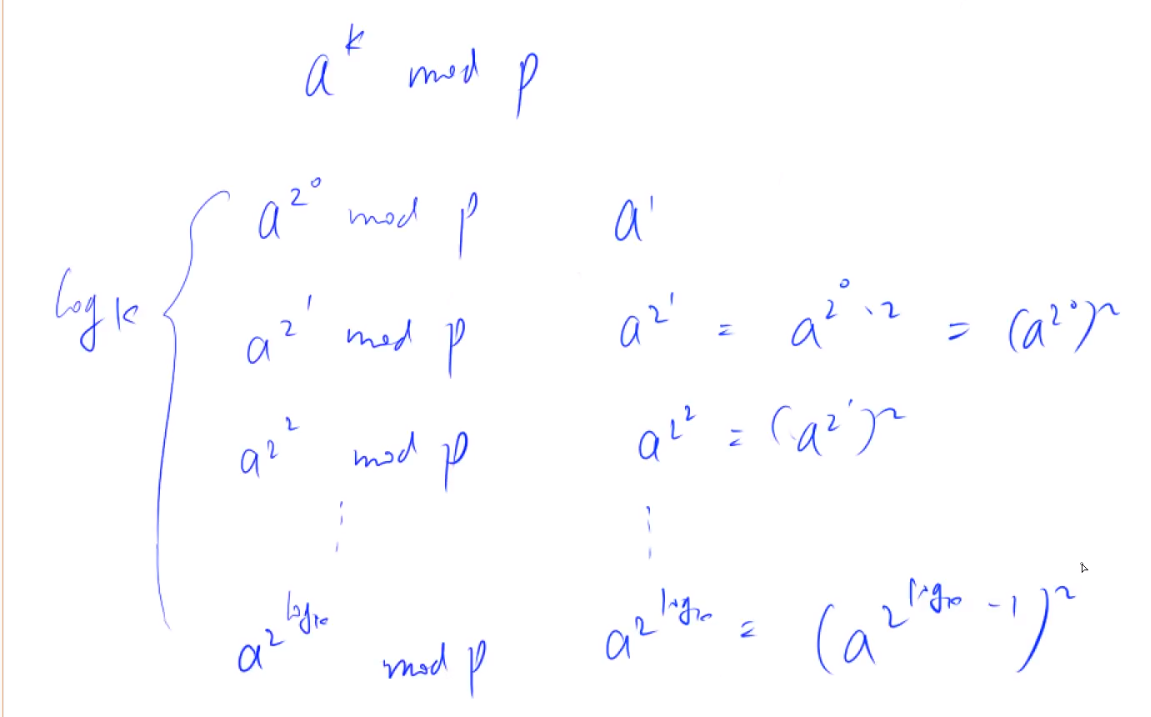 a^k mod p
a^{2^0} mod p a^1
log k { a^{2^1} mod p a^{2^1} = a^{2^0 · 2} = (a^{2^0})^2
a^{2^2} mod p a^{2^2} = (a^{2^1})^2
⋮ ⋮
a^{2^{log k}} mod p a^{2^{log k}} = (a^{2^{log k - 1}})^2